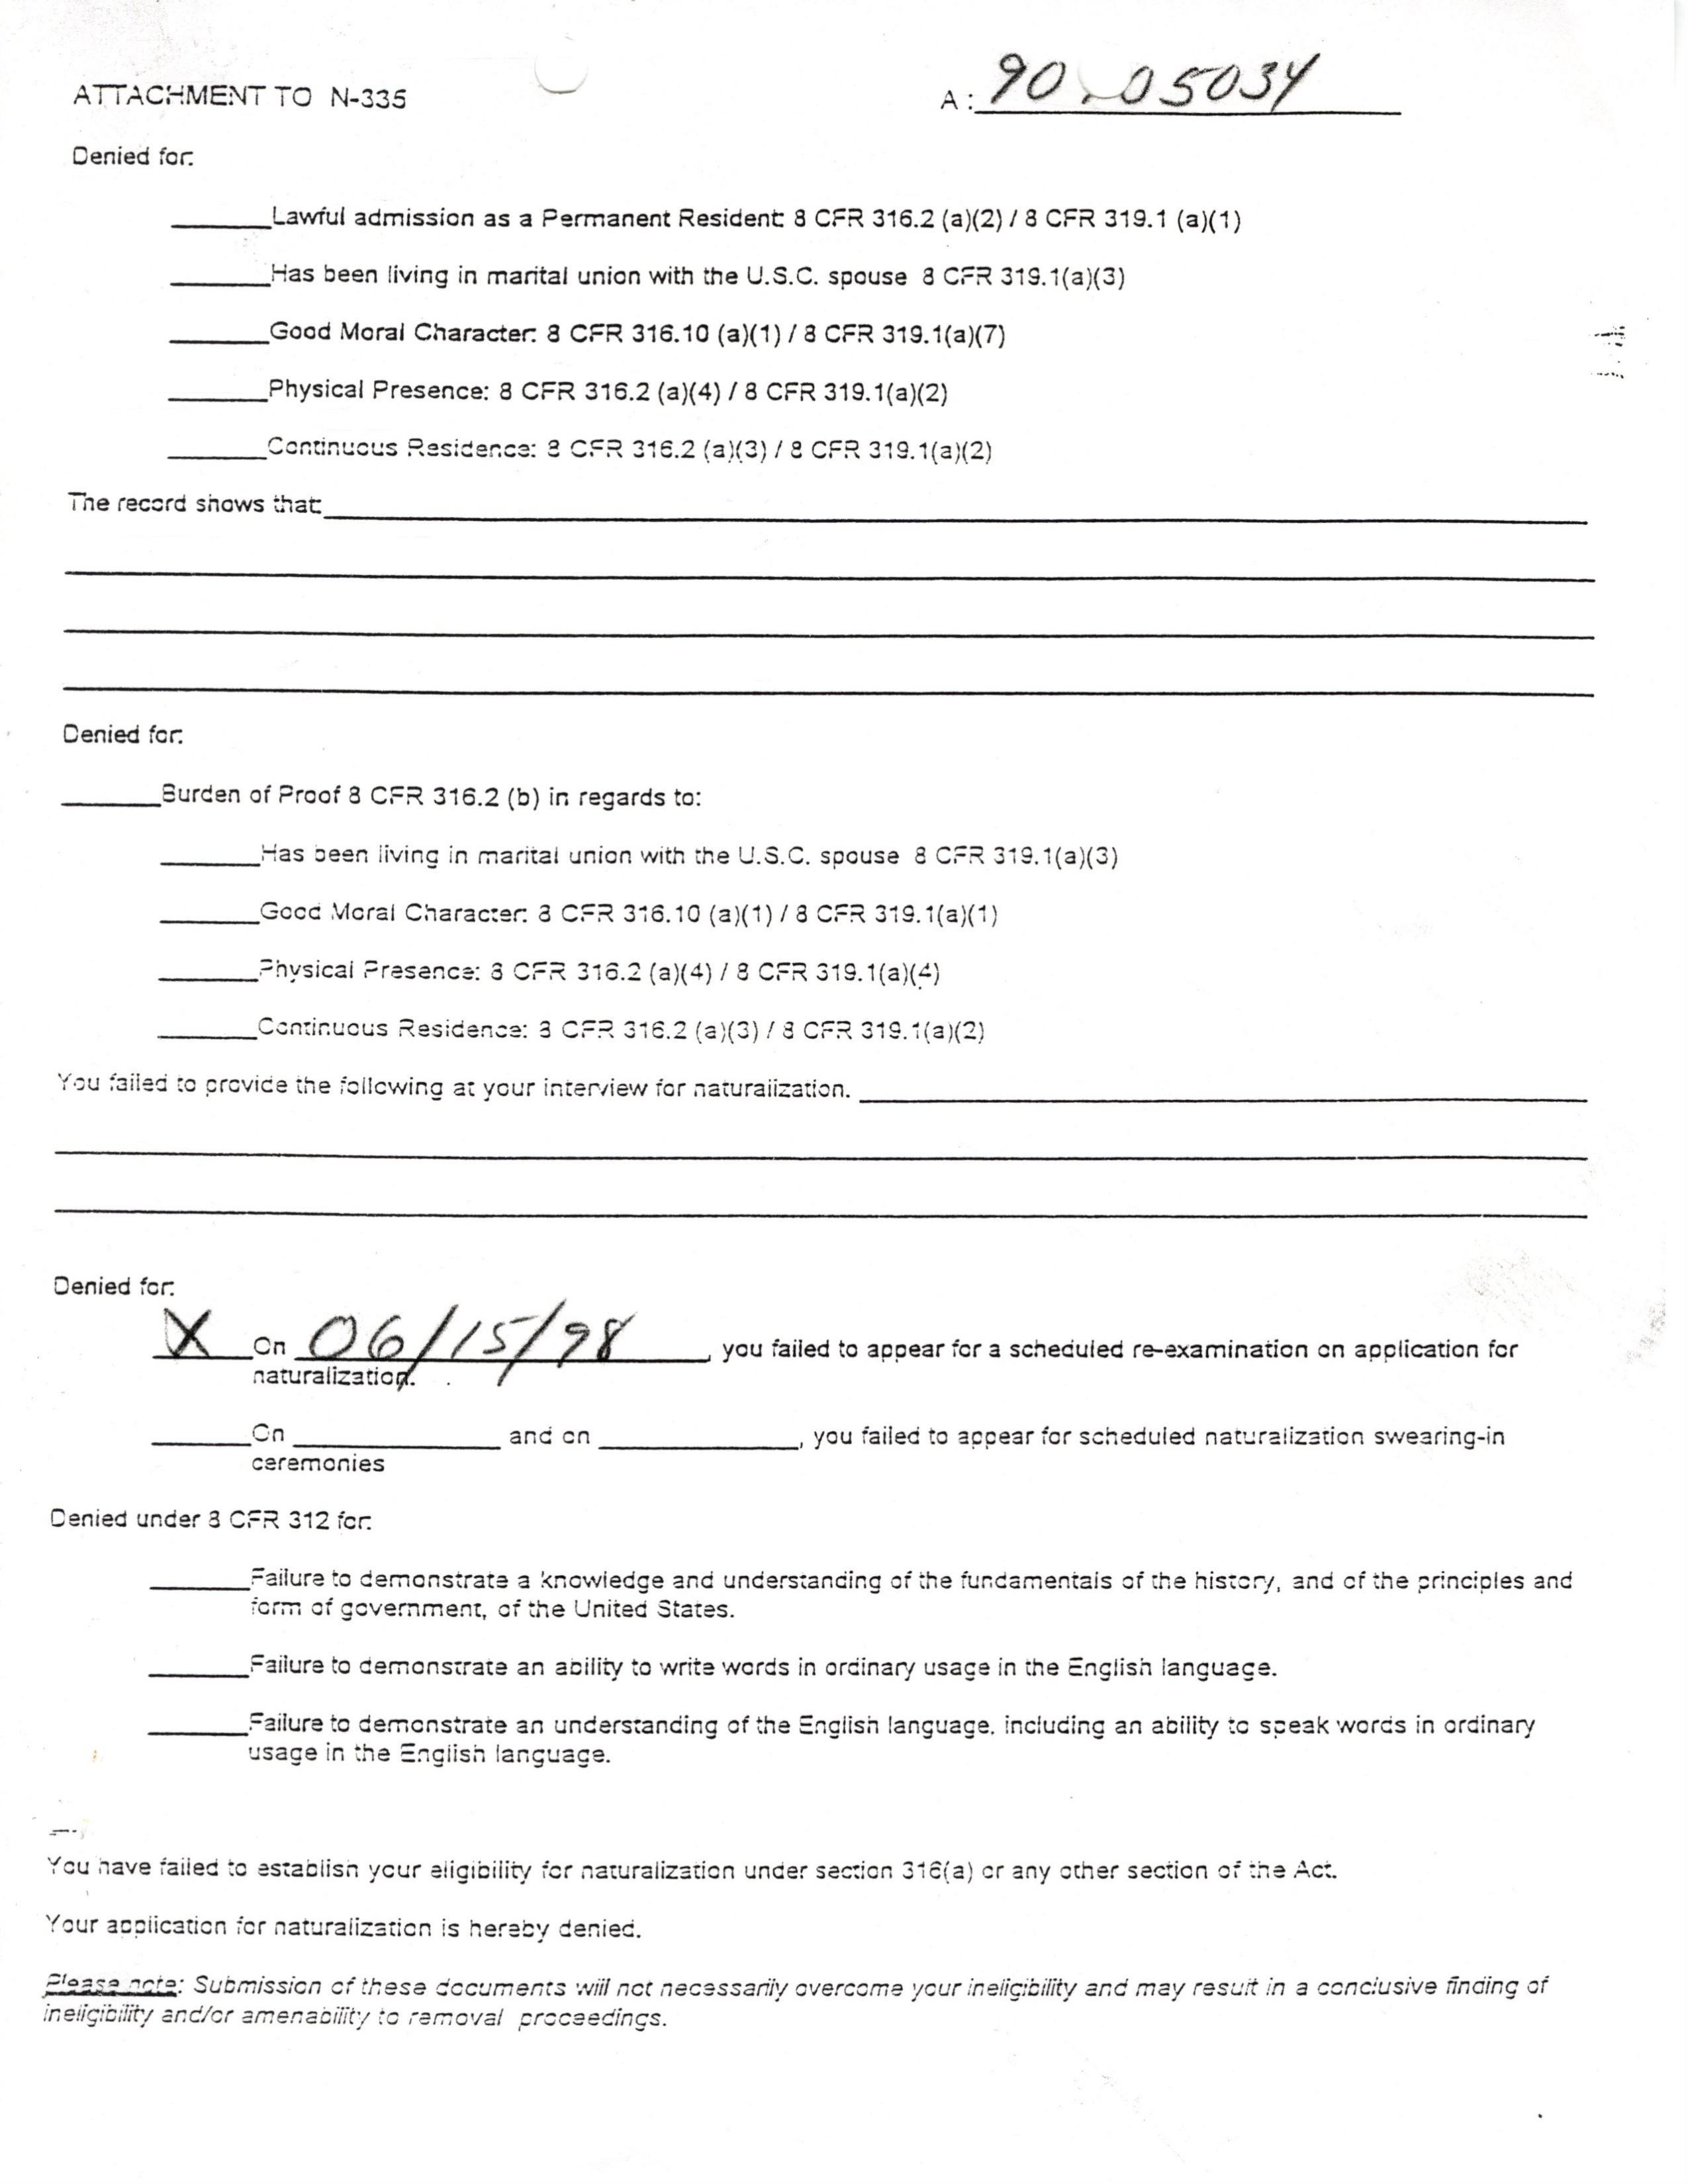 ATTACHMENT TO N-335
A: 90 05034
Denied for:
Lawful admission as a Permanent Resident: 8 CFR 316.2 (a)(2) / 8 CFR 319.1 (a)(1)
Has been living in marital union with the U.S.C. spouse 8 CFR 319.1(a)(3)
Good Moral Character: 8 CFR 316.10 (a)(1) / 8 CFR 319.1(a)(7)
Physical Presence: 8 CFR 316.2 (a)(4) / 8 CFR 319.1(a)(2)
Continuous Residence: 8 CFR 316.2 (a)(3) / 8 CFR 319.1(a)(2)
The record shows that:
Denied for:
Burden of Proof 8 CFR 316.2 (b) in regards to:
Has been living in marital union with the U.S.C. spouse 8 CFR 319.1(a)(3)
Good Moral Character: 8 CFR 316.10 (a)(1) / 8 CFR 319.1(a)(1)
Physical Presence: 8 CFR 316.2 (a)(4) / 8 CFR 319.1(a)(4)
Continuous Residence: 8 CFR 316.2 (a)(3) / 8 CFR 319.1(a)(2)
You failed to provide the following at your interview for naturalization.
Denied for:
X On 06/15/98, you failed to appear for a scheduled re-examination on application for
naturalization.
On and on , you failed to appear for scheduled naturalization swearing-in
ceremonies
Denied under 8 CFR 312 for:
Failure to demonstrate a knowledge and understanding of the fundamentals of the history, and of the principles and
form of government, of the United States.
Failure to demonstrate an ability to write words in ordinary usage in the English language.
Failure to demonstrate an understanding of the English language, including an ability to speak words in ordinary
usage in the English language.
You have failed to establish your eligibility for naturalization under section 316(a) or any other section of the Act.
Your application for naturalization is hereby denied.
Please note: Submission of these documents will not necessarily overcome your ineligibility and may result in a conclusive finding of
ineligibility and/or amenability to removal proceedings.